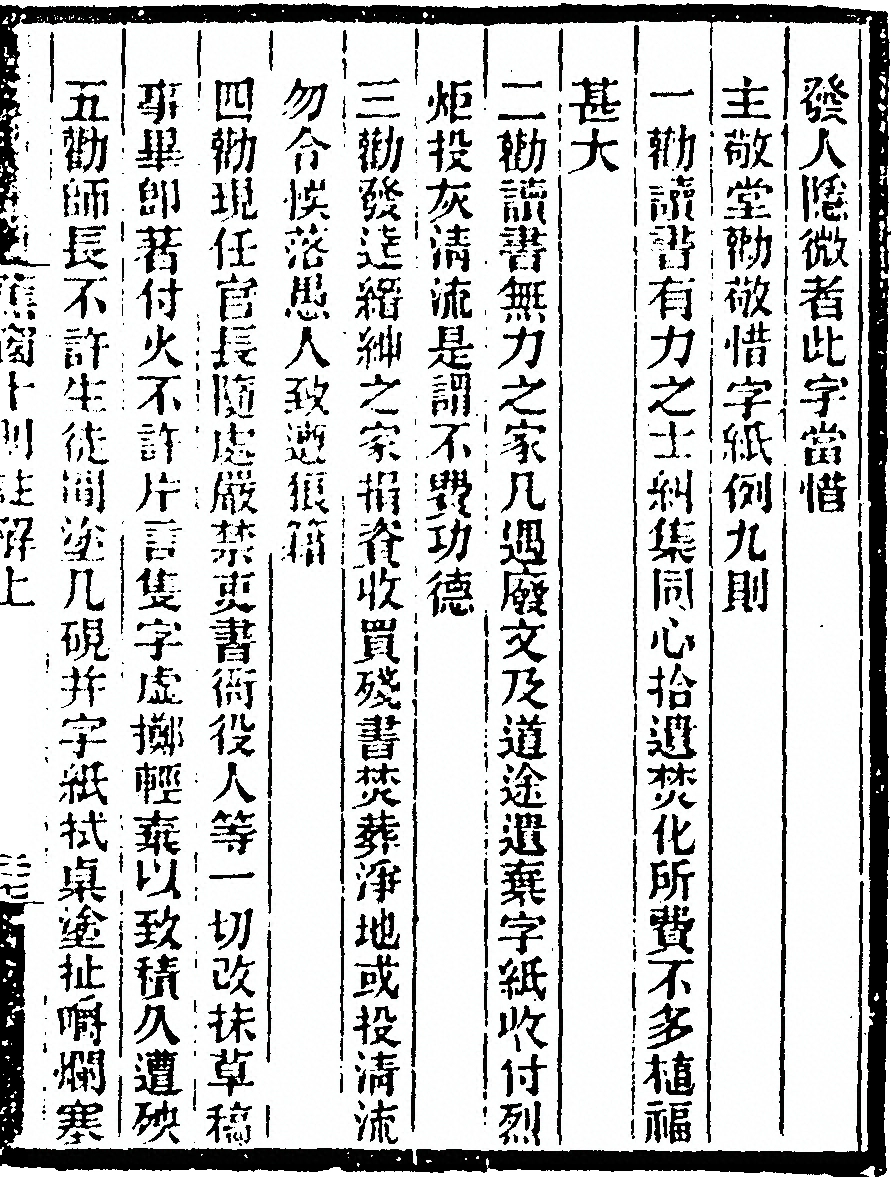 發人隱微者此字當惜
主敬堂勸敬惜字紙例九則
一勸讀書有力之士糾集同心拾遺焚化所費不多植福
甚大
二勸讀書無力之家凡遇廢文及道途遺棄字紙收付烈
炬投灰清流是謂不費功德
三勸發達縉紳之家捐資收買殘書焚葬淨地或投清流
勿令悞落愚人致遭狼籍
四勸現任官長隨處嚴禁吏書衙役人等一切改抹草稿
事畢即著付火不許片言隻字虛擲輕棄以致積久遭殃
五勸師長不許生徒間塗几硯并字紙拭桌塗扯嚼爛塞
蕉窗十則註解上